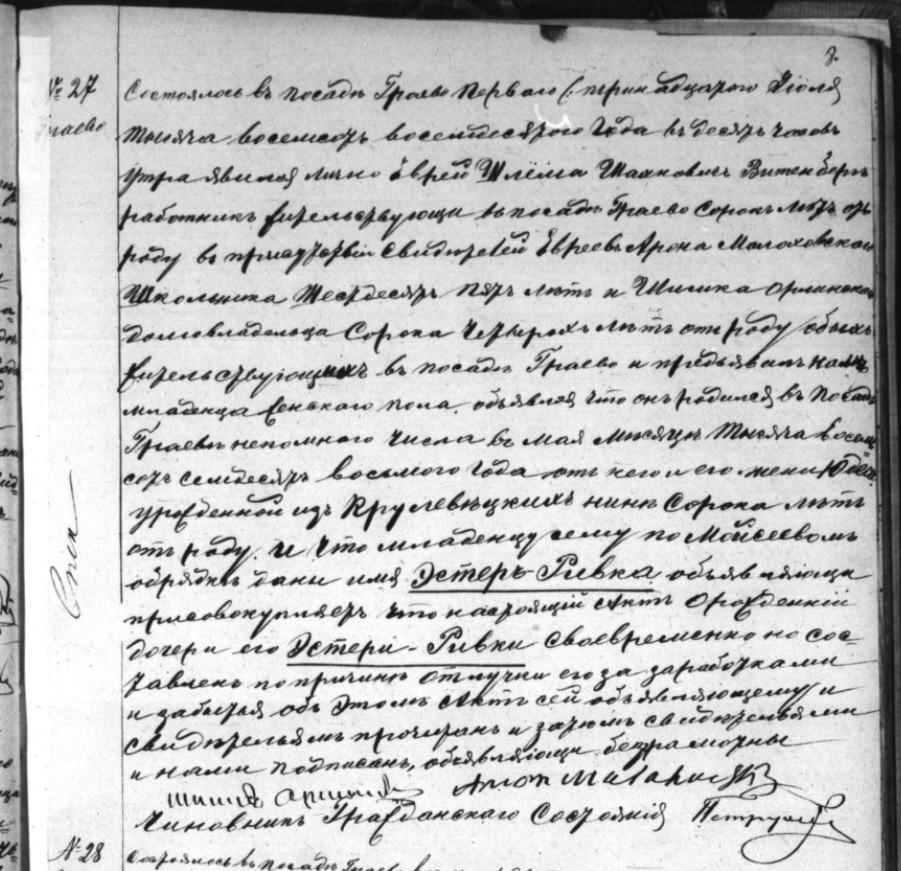 8.
№ 27
Граево
Состоялось въ посадѣ Граево Перваго (: тринадцатаго Іюля
тысяча восемсотъ восемдесятого Года въ десять часовъ
утра явился лично Еврей Шлёма Витенбергъ
работникъ жительствующи въ посадѣ Граево Сорокъ лѣтъ отъ
роду въ присутствіи Свидѣтелей Евреевъ Арона Малаховскаго
Школьника Шестдесятъ пять лѣтъ и Шимка Орлинскаго
домовладельца Сорока Четырохъ лѣтъ отъ роду обыхъ
жительствующихъ въ посадѣ Граево и предъявилъ намъ
младенца женскаго пола. объявляя что онъ родился въ Посадѣ
Граевѣ непомного числа въ мая мѣсяцѣ тысяча восем
сотъ семдесятъ восьмого Года отъ него и его жени
урожденной изъ нинѣ Сорока лѣтъ
отъ роду. и что младенцу сему по Мойсеевомъ
обрядкѣ даны имя Эстеръ-Ривка объявляющи
присовокупляетъ что настоящій Актъ Орожденніи
дочери его Эстери-Ривки своевременно но сос
тавленъ по причинѣ отлучки его за заработками
и забытья объ этомъ Актъ сей объявляющему и
свидѣтельямъ прочитанъ и затемъ свидѣтельями
и нами подписанъ, объявляющи безграмотны
Чиновникъ Гражданскаго Состоянія
№ 28
Состоялось въ посадѣ Граево